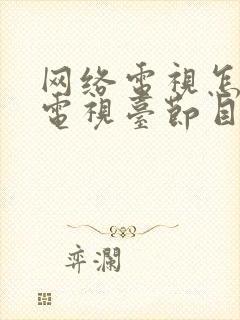 网络電視怎
電視臺節目
弈瀾